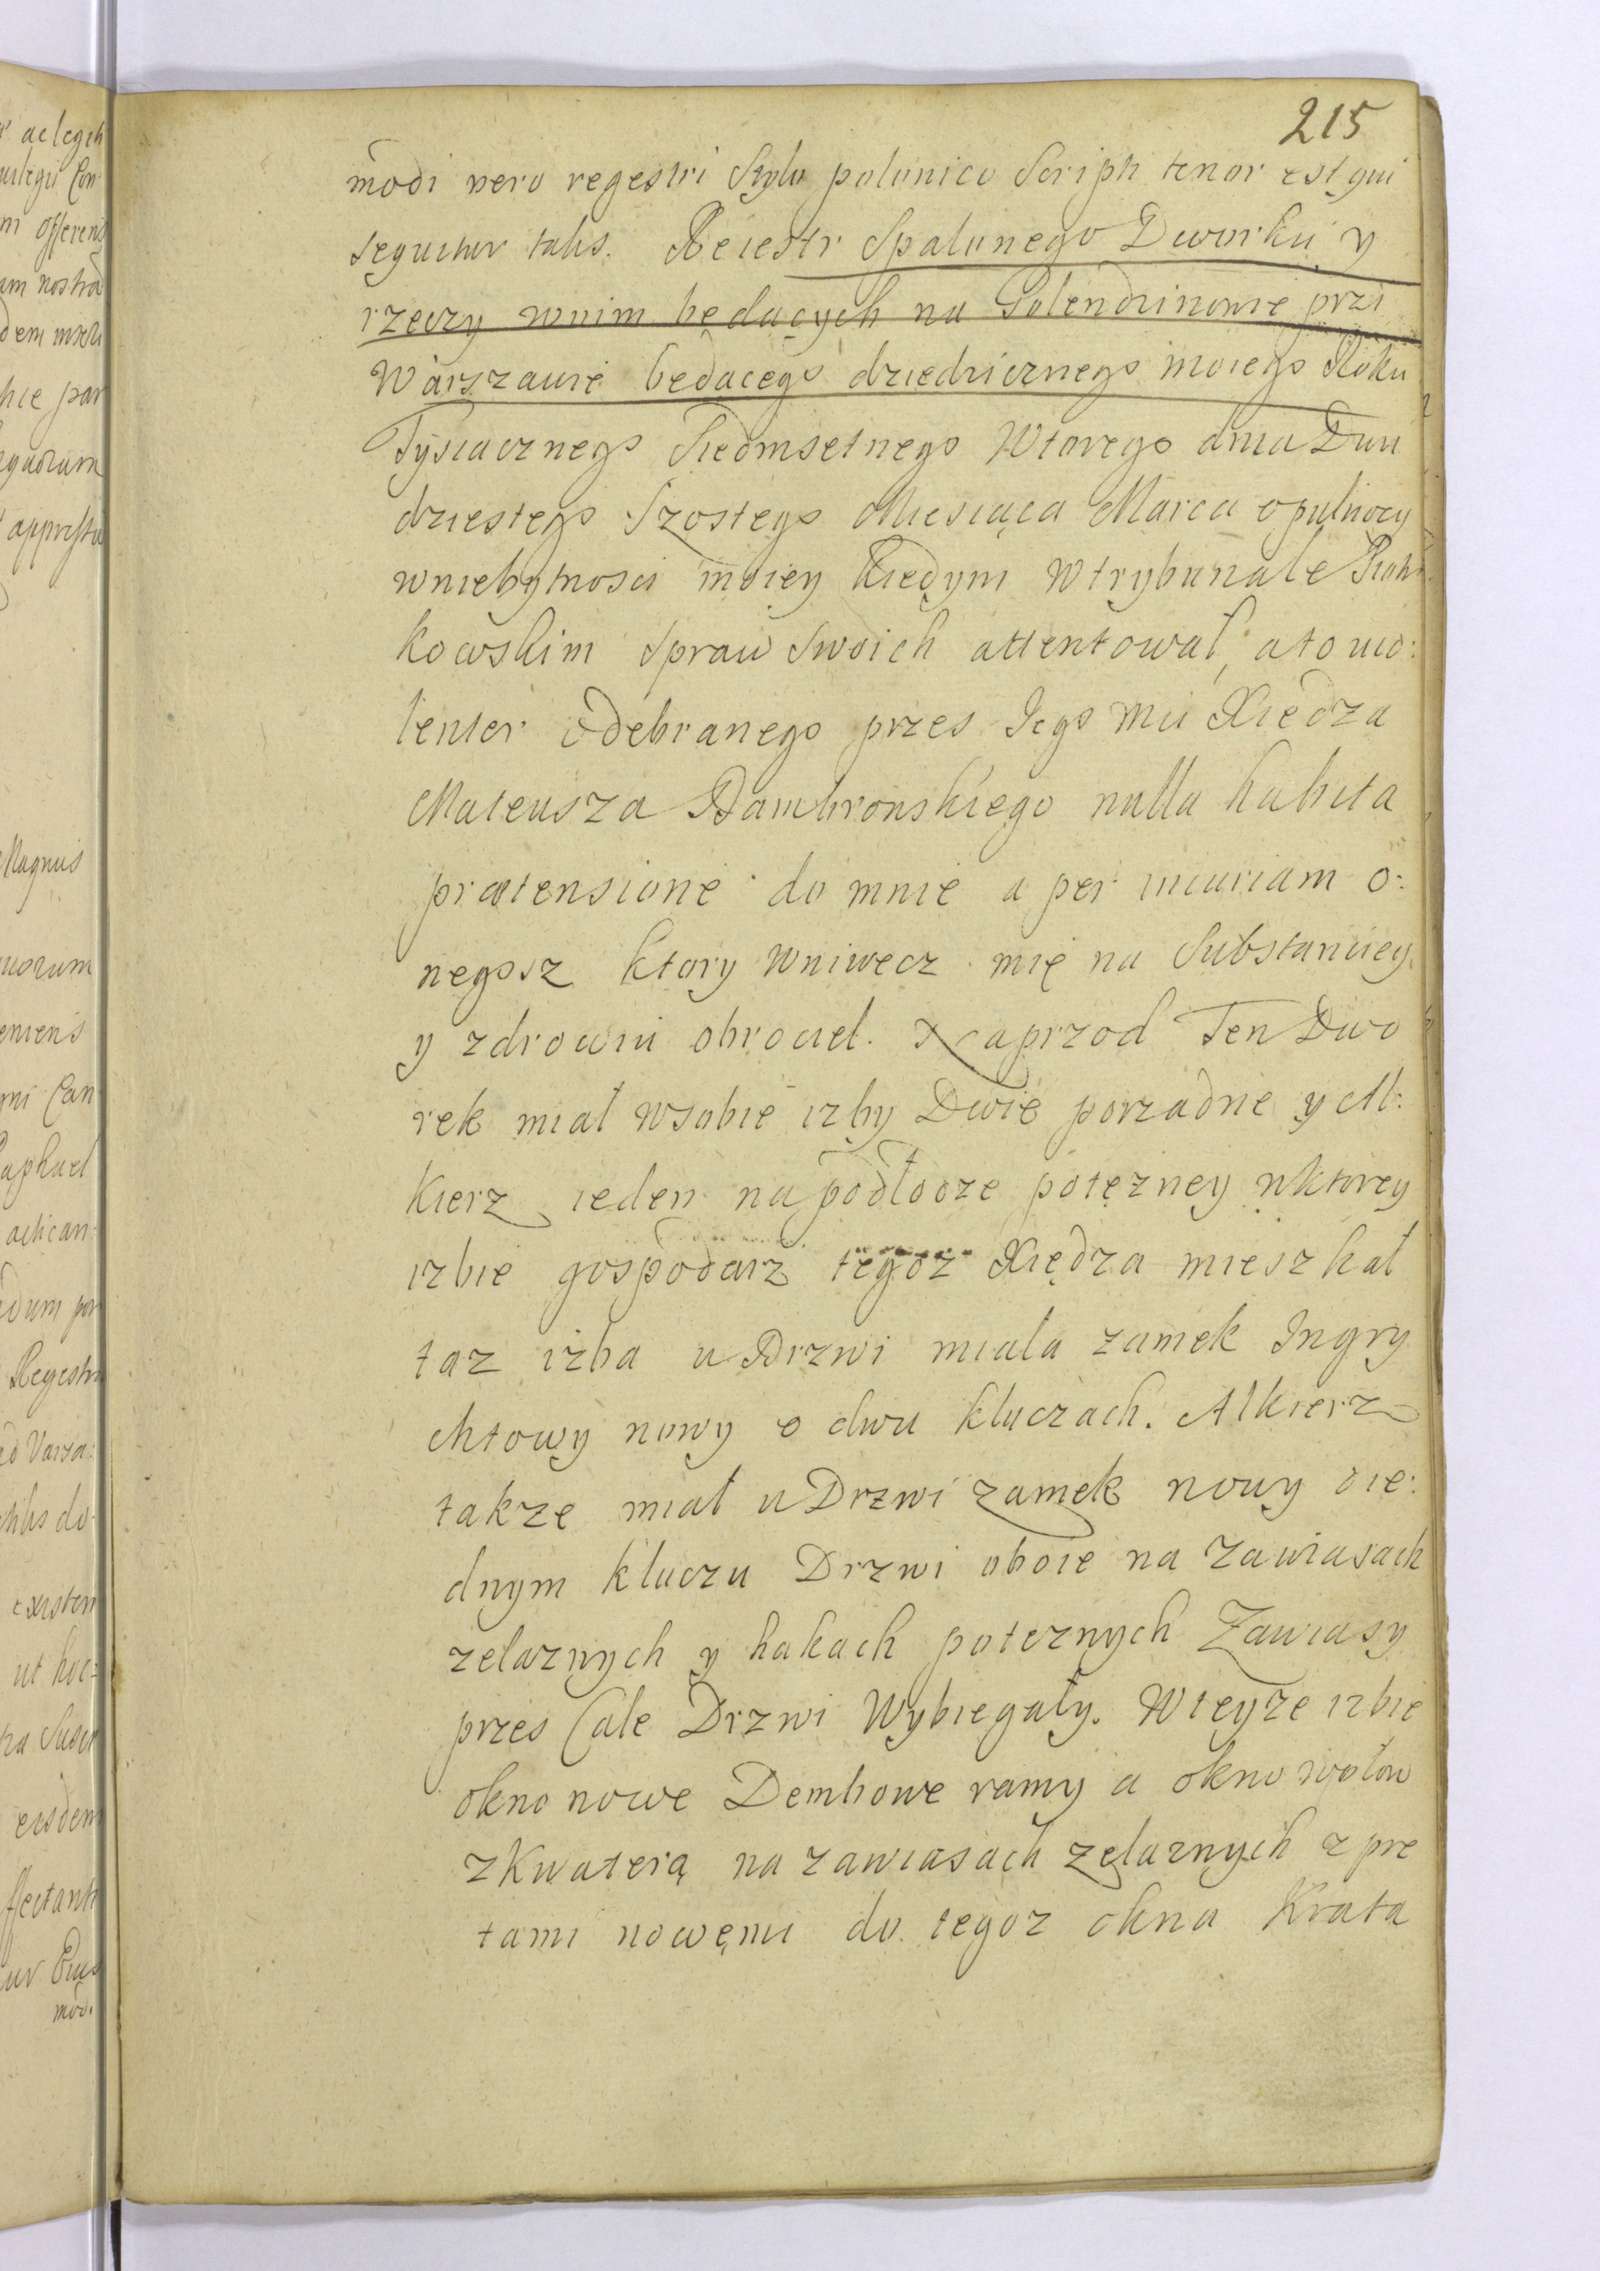 215
modi vero regestri Stylo polonico Scripti tenor est qui
sequitur talis. Reiestr Spalonego Dworku y
rzeczy wnim będących na Golendzinowie przi
Warszawie będącego dziedzicznego moiego Roku
Tysiacznego Siedmsetnego Wtorego dnia Dwu
dziestego Szostego Miesiąca Marca o pulnocy
wniebytnosci moiey kiedym wtrybunale Piotr
kowskim Spraw Swoich attentował, a to vio:
lenter odebranego przes Jego Mci Xiedza
Mateusza Dambronskiego nulla habita
prætensione do mnie a per incuriam o:
negosz ktory wniwecz mię na Substanciey
y zdrowiu obrociel. Naprzod Ten Dwo
rek miał wsobie izby Dwie porzadne y Al:
kierz ieden na podłodze potęzney w ktorey
izbie gospodarz tegoz Xiędza mieszkał
taz izba u Drzwi miala zamek Ingry
chtowy nowy o dwu kluczach. Alkierz
takze miał u Drzwi zamek nowy o ie:
dnym kluczu Drzwi oboie na zawiasach
zelaznych y hakach poteznych Zawiasy
przes Cale Drzwi Wybiegały. Wteyze izbie
okno nowe Dembowe ramy a okno wołow
z kwaterą na zawiasach zelaznych z prę
tami nowemi do tegoz okna Krata